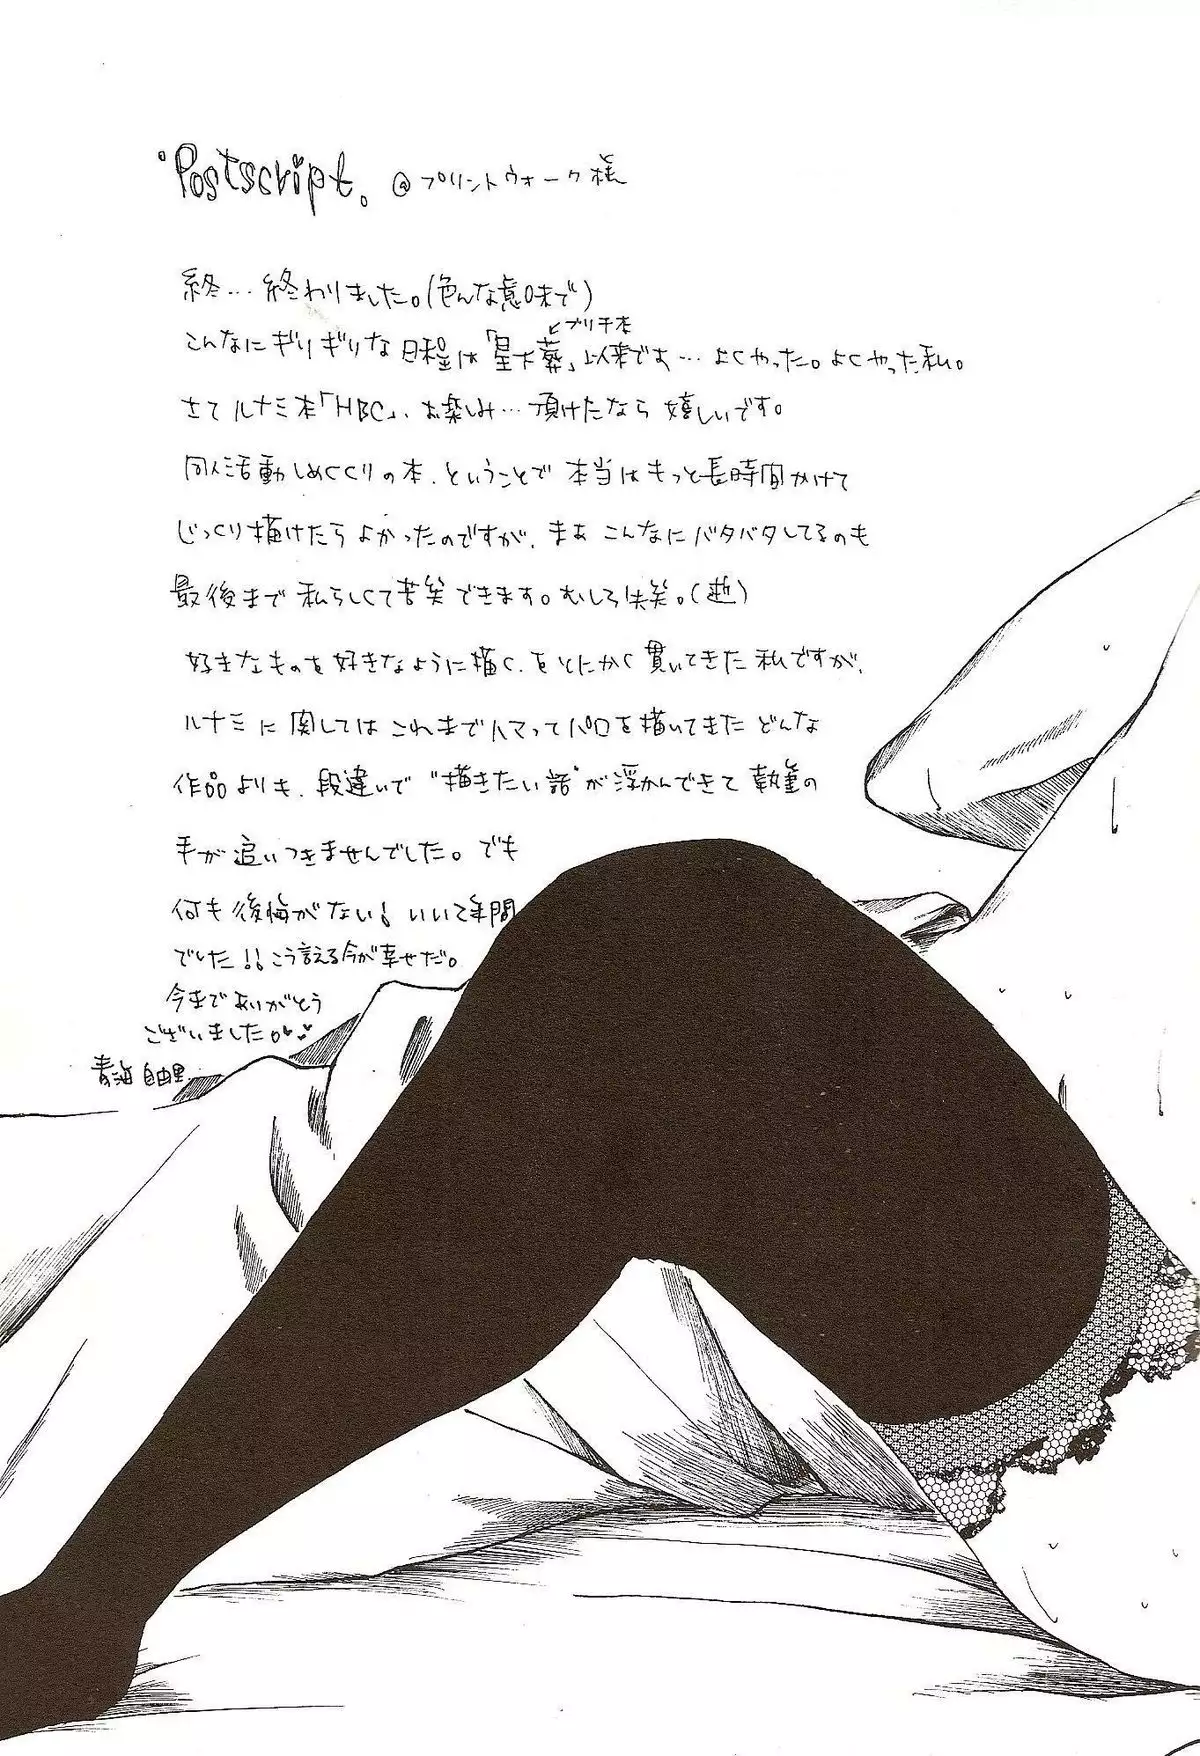 Postscript. @プリントウォーク様
終…終わりました。(色んな意味で)
プリチ本
こんなにギリギリな日程は「星大葬」以来です…よくやった。よくやった私。
さてルナミ本「HBC」、お楽しみ…頂けたなら嬉しいです。
同人活動しめくくりの本、ということで本当はもっと長時間かけて
じっくり描けたらよかったのですが、まぁこんなにバタバタしてるのも
最後まで私らしくて苦笑できます。むしろ失笑。(逝)
好きなものを好きなように描く、をとにかく貫いてきた私ですが、
ルナミに関してはこれまでハマってパロを描いてきたどんな
作品よりも、段違いで“描きたい話”が浮かんできて執筆の
手が追いつきませんでした。でも
何も後悔がない!いい1年間
でした!!こう言える今が幸せだ。
今までありがとう
ございました。
青海自由里